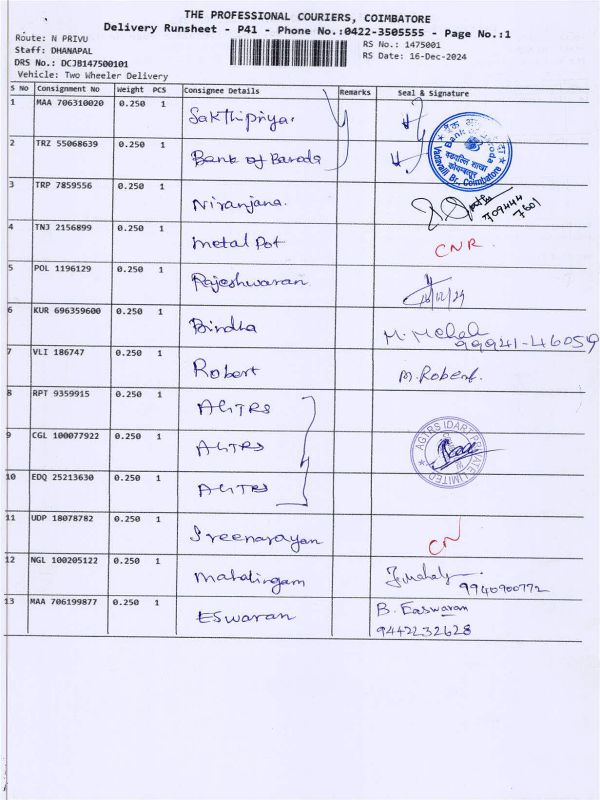 THE PROFESSIONAL COURIERS, COIMBATORE
Delivery Runsheet - P41 - Phone No.:0422-3505555 - Page No.:1
Route: N PRIVU
RS No.: 1475001
Staff: DHANAPAL
RS Date: 16-Dec-2024
DRS No.: DCJB147500101
Vehicle: Two Wheeler Delivery
S No Consignment No Weight PCS Consignee Details Remarks Seal & Signature
1 MAA 706310020 0.250 1 Sakthipriya.
2 TRZ 55068639 0.250 1 Bank of Baroda
Bank of Baroda
वडवल्लि शाखा
कोयम्बत्तूर
Vadavalli Br. Coimbatore
3 TRP 7859556 0.250 1 Niranjana.
4 TNJ 2156899 0.250 1 Metal Pot CNR.
5 POL 1196129 0.250 1 Rajeshwaran 16/12/24
6 KUR 696359600 0.250 1 Bindha
99941-46059
7 VLI 186747 0.250 1 Robert M. Robert.
8 RPT 9359915 0.250 1 AGTRS
9 CGL 100077922 0.250 1 AGTRS
AGTRS IDART PRIVATE LIMITED
10 EDQ 25213630 0.250 1 AGTRS
11 UDP 18078782 0.250 1 Sreenarayan CN
12 NGL 100205122 0.250 1 Mahalingam
9940900772
13 MAA 706199877 0.250 1 Eswaran B. Easwaran
9442232628